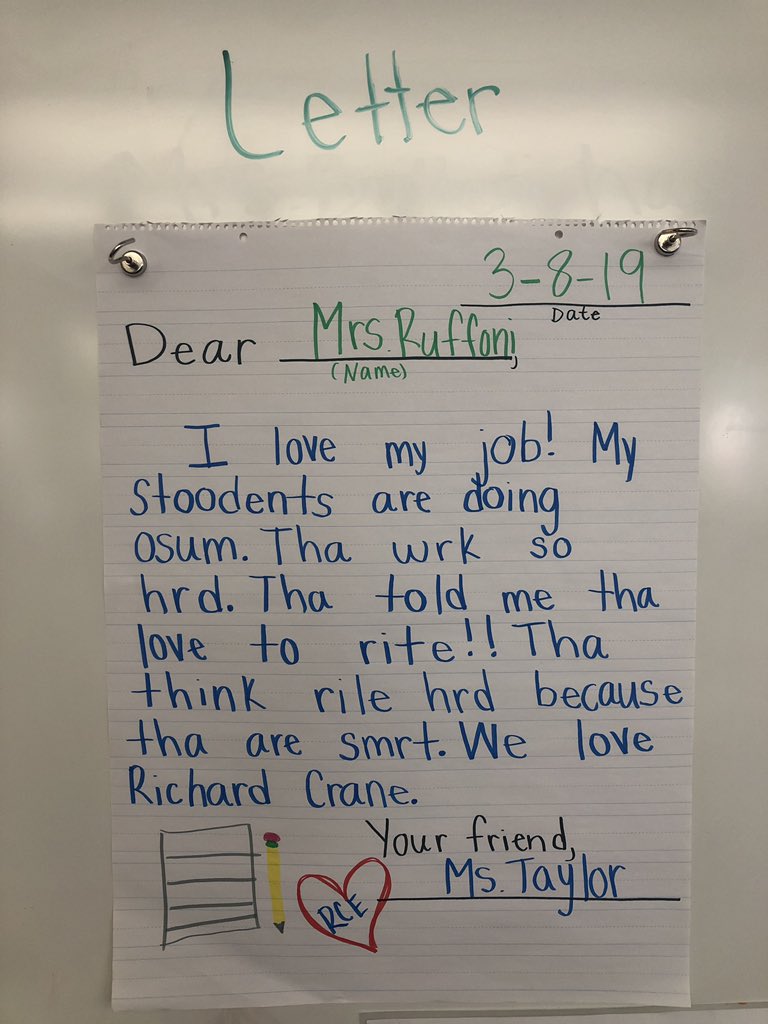 Letter
3-8-19
Date
Dear Mrs. Ruffoni,
(Name)
I love my job! My
Stoodents are doing
osum. Tha wrk so
hrd. Tha told me tha
love to rite!! Tha
think rile hrd because
tha are smrt. We love
Richard Crane.
Your friend,
Ms. Taylor
RCE